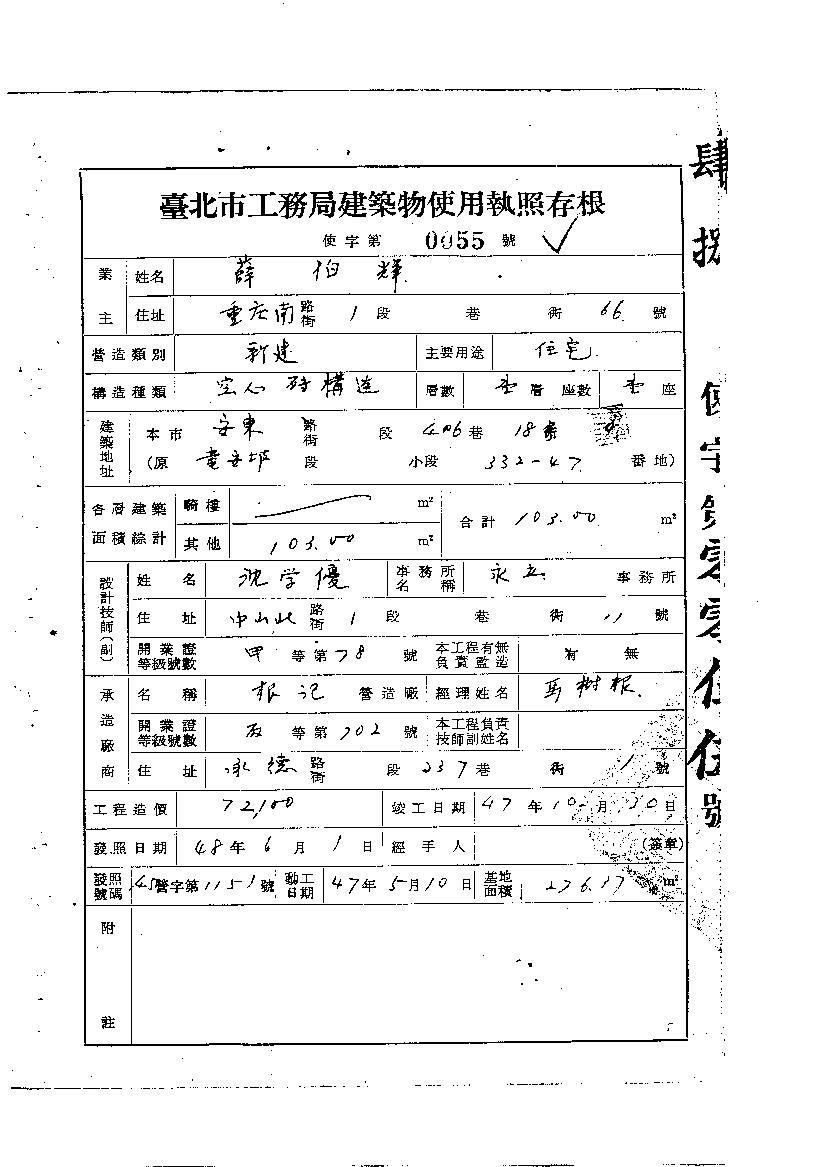 臺北市工務局建築物使用執照存根
使字第 0055 號
業主 姓名 薛伯輝
住址 重慶南 路街 1 段 巷 街 66 號
營造類別 新建 主要用途 住宅
構造種類 空心砖構造 層數 壹層 座數 壹座
建築地址 本市 安東 路街 段 406 巷 18
(原 龍安坡 段 小段 332-47 番地)
各層建築面積綜計 騎樓 m² 合計 103.00 m²
其他 103.00 m²
設計技師(副) 姓名 沈学優 事務所名稱 永立 事務所
住址 中山北 路街 1 段 巷 街 11 號
開業證等級號數 甲 等第 78 號 本工程有無負責監造 有 無
承造廠商 名稱 根记 營造廠 經理姓名 馬樹根
開業證等級號數 等第 702 號 本工程負責技師副姓名
住址 承德 路街 段 237 巷 街 1 號
工程造價 72,100 竣工日期 47年10月30日
發照日期 48年6月1日 經手人 (簽章)
發照號碼 45營字第1151號 動工日期 47年5月10日 基地面積 276.17 m²
附註
肆捌 使字第零零伍伍號